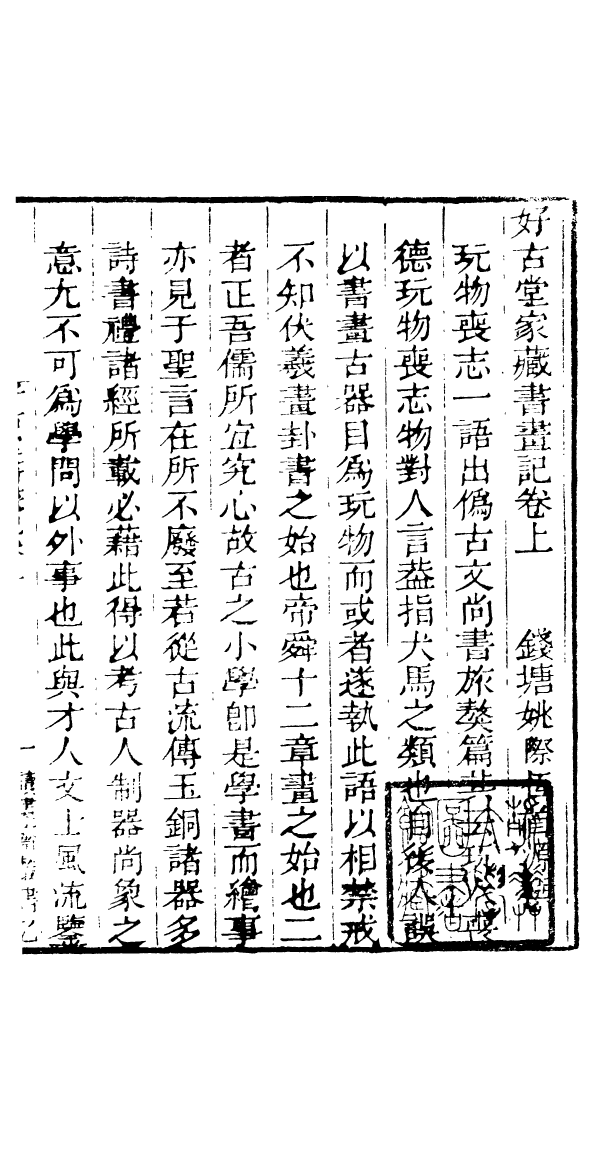 好古堂家藏書畫記卷上　錢塘姚際恆首源
玩物喪志一語出僞古文尚書旅獒篇
德玩物喪志物對人言葢指犬馬之類也自後人誤
以書畫古器目爲玩物而或者遂執此語以相禁戒
不知伏羲畫卦書之始也帝舜十二章畫之始也二
者正吾儒所宜究心故古之小學卽是學書而繪事
亦見于聖言在所不廢至若從古流傳玉銅諸器多
詩書禮諸經所載必藉此得以考古人制器尚象之
意尢不可爲學問以外事也此與才人文士風流鑒
一